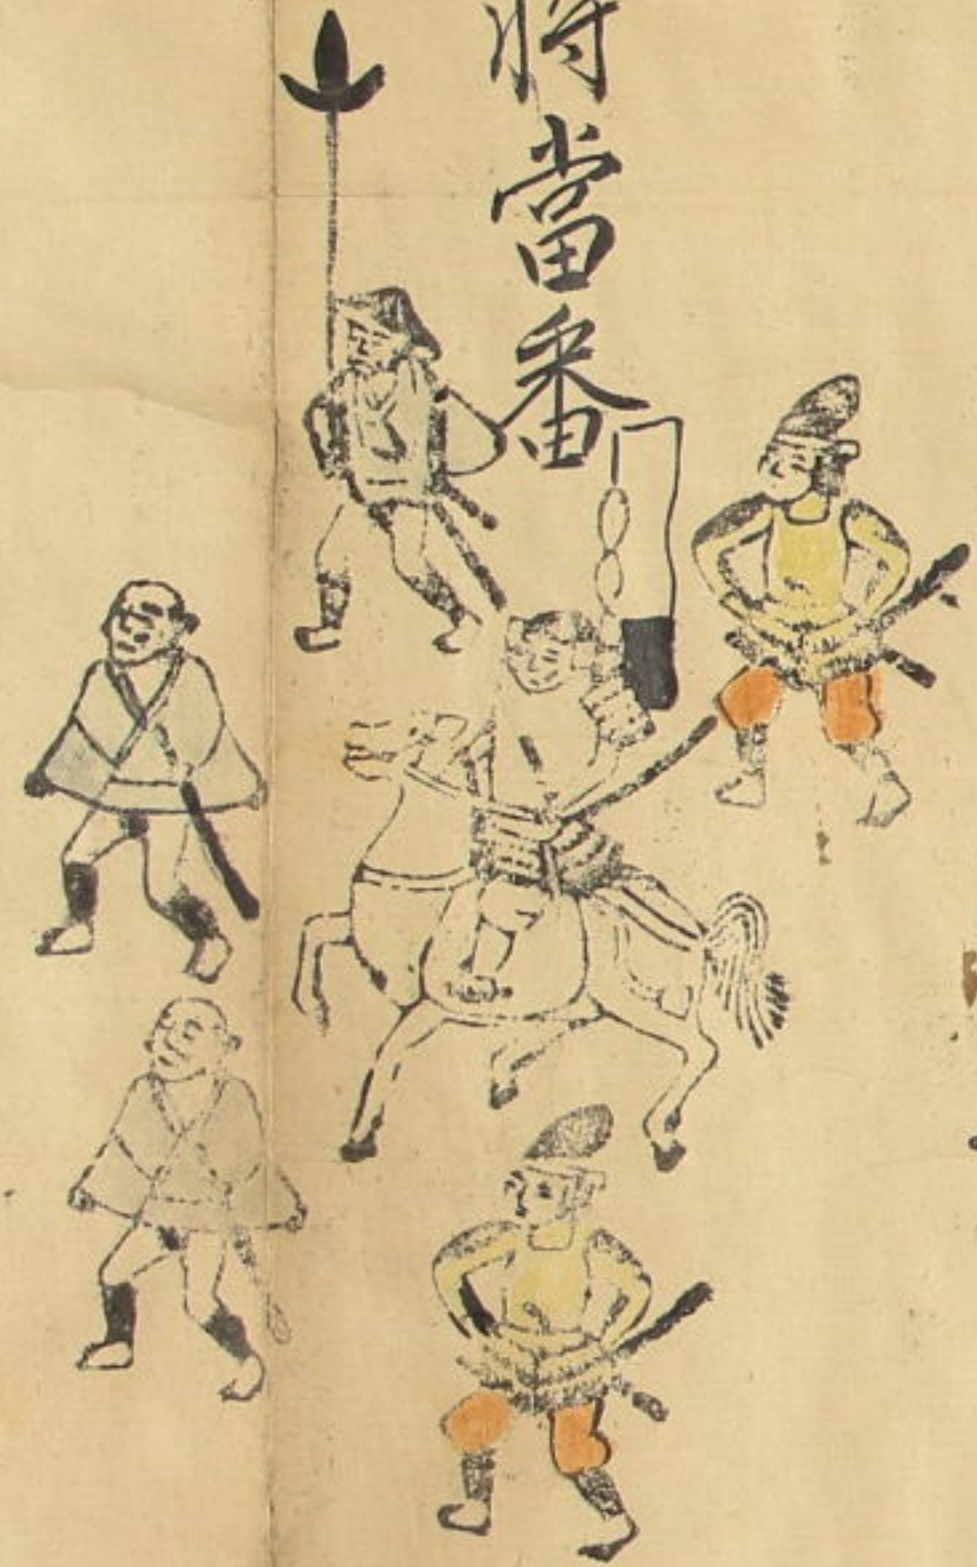 將當番